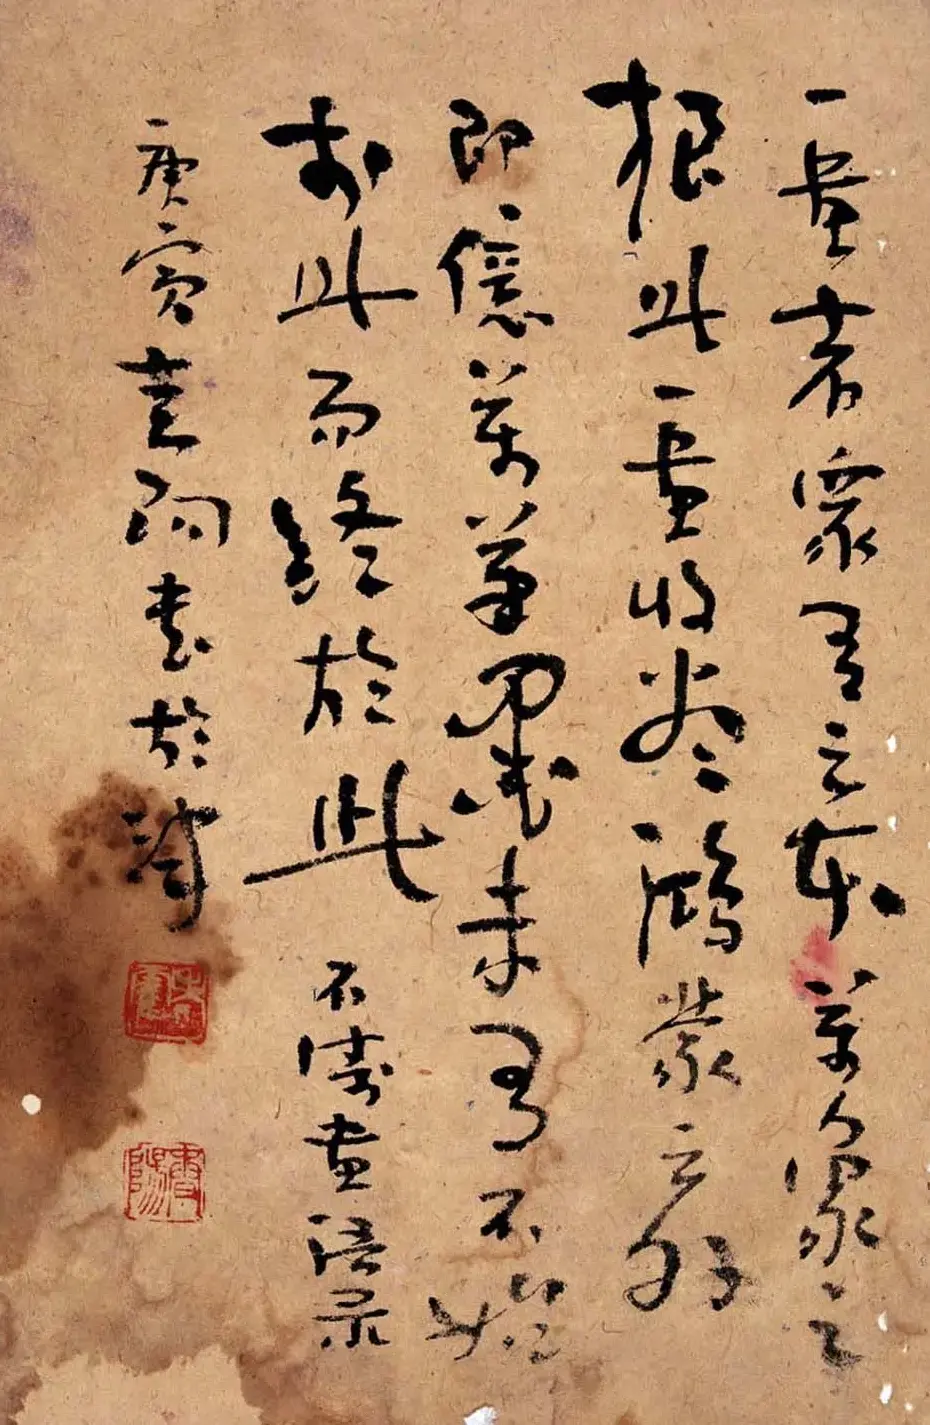 一畫者眾有之本萬象之
根此一畫收盡鴻蒙之外
即億萬筆墨未有不始
於此而終於此 石濤畫語录
庚寅 書於